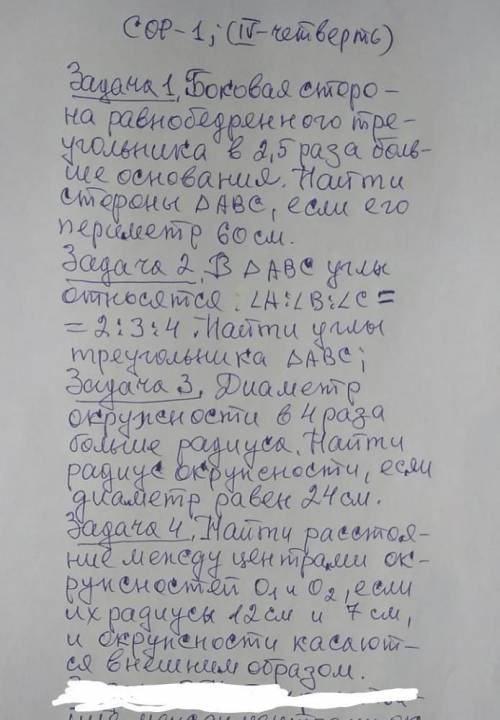 СОР-1; (IV-четверть)
Задача 1. Боковая сторо-
на равнобедренного тре-
угольника в 2,5 раза боль-
ше основания. Найти
стороны △ABC, если его
периметр 60 см.
Задача 2. В △ABC углы
относятся: ∠A:∠B:∠C =
= 2:3:4. Найти углы
треугольника △ABC;
Задача 3. Диаметр
окружности в 4 раза
больше радиуса. Найти
радиус окружности, если
диаметр равен 24 см.
Задача 4. Найти расстоя-
ние между центрами ок-
ружностей O₁ и O₂, если
их радиусы 12 см и 7 см,
и окружности касают-
ся внешним образом.